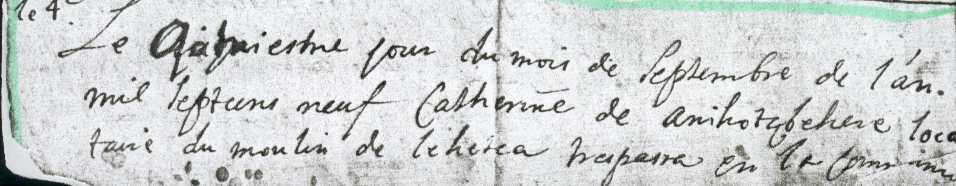 le 4.
Le Quatriesme jour du mois de Septembre de l'an.
mil septcens neuf Catherine de anihotzbehere loca
taire du moulin de leherea trespassa en la commun